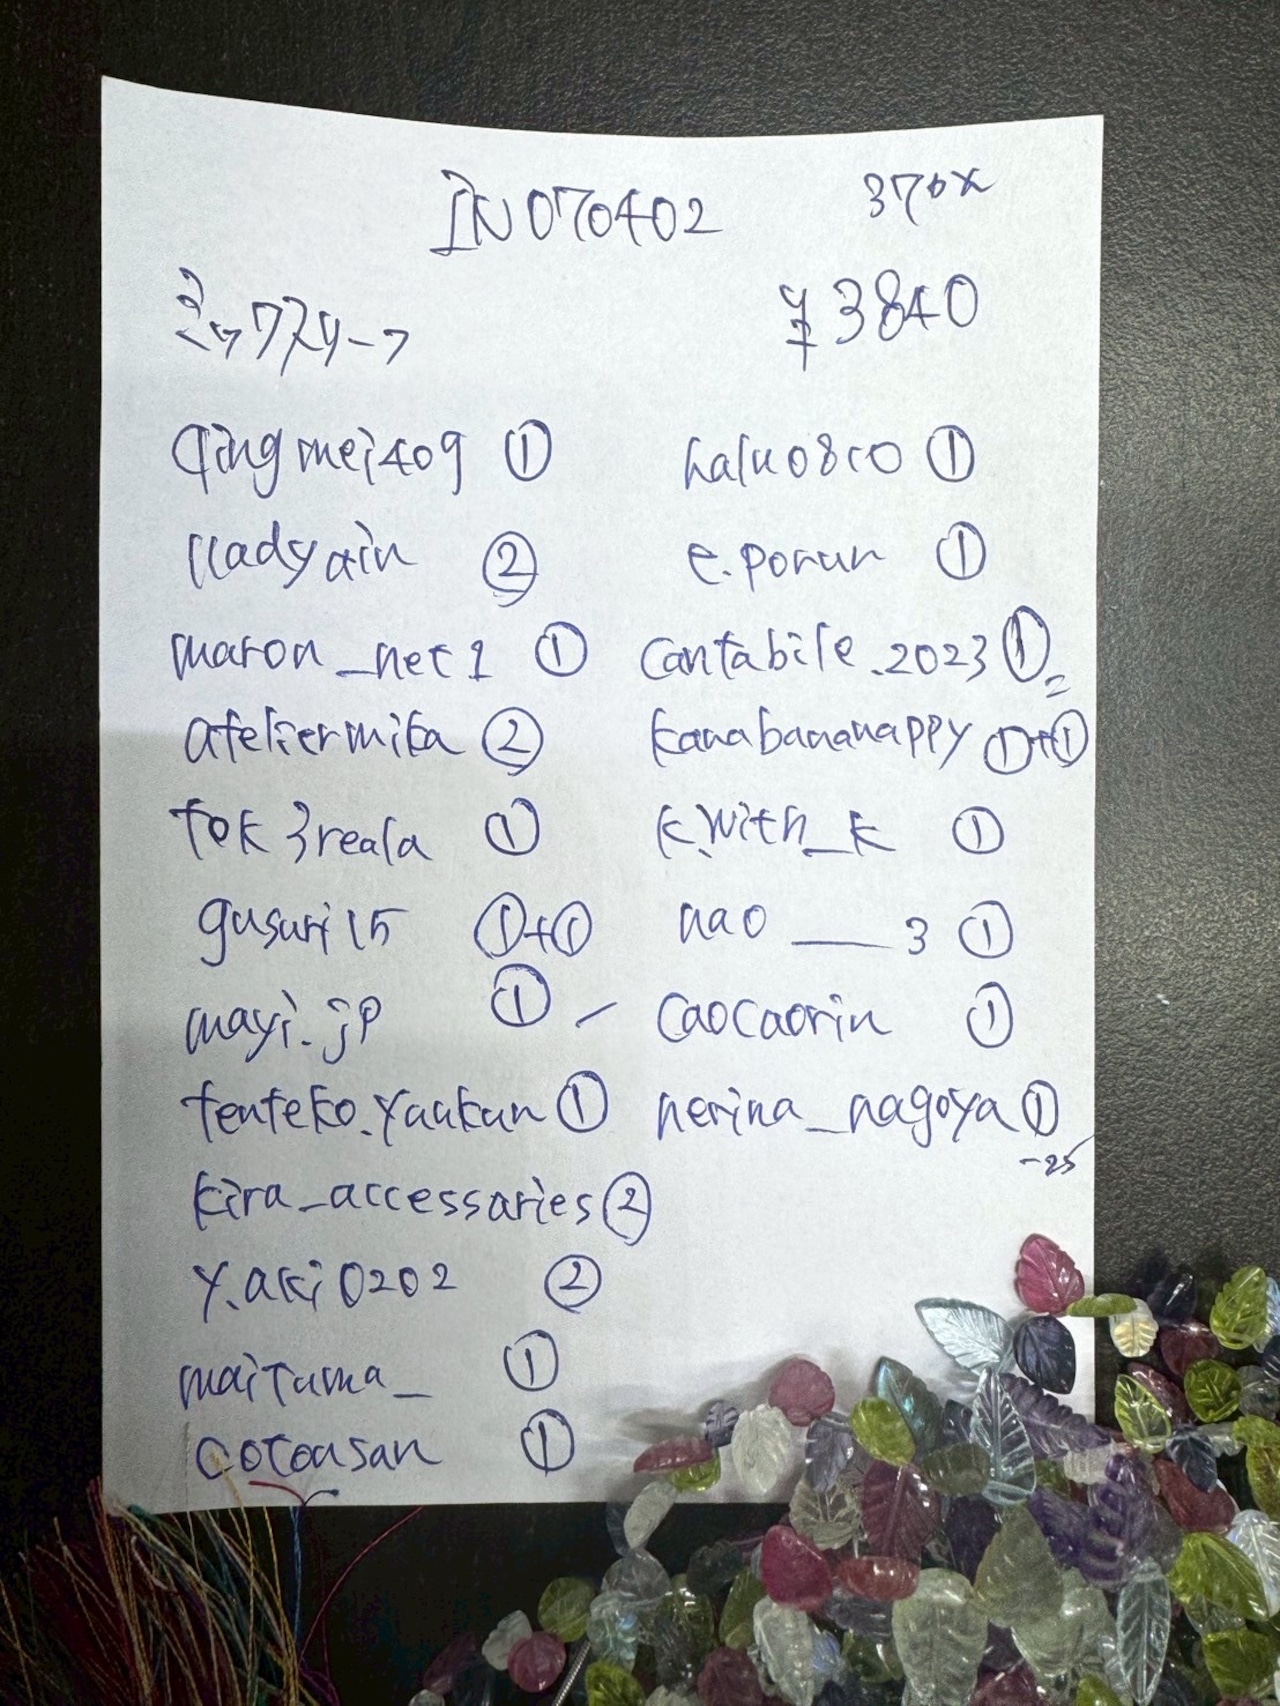 IN070402 370x
ミックスリーフ ¥3840
qingmei409 ① halu0810 ①
lladyain ② e.porun ①
maron_net1 ① cantabile.2023 ①
ateliermika ② kanabananappy ①+①
tok3reala ① k.with_k ①
gusuri15 ①+① nao___3 ①
mayi.jp ① caocaorin ①
tenteko.yuukun ① nerina_nagoya ①
-25
kira_accessaries ②
y.aki0202 ②
maituma_ ①
cotoasan ①